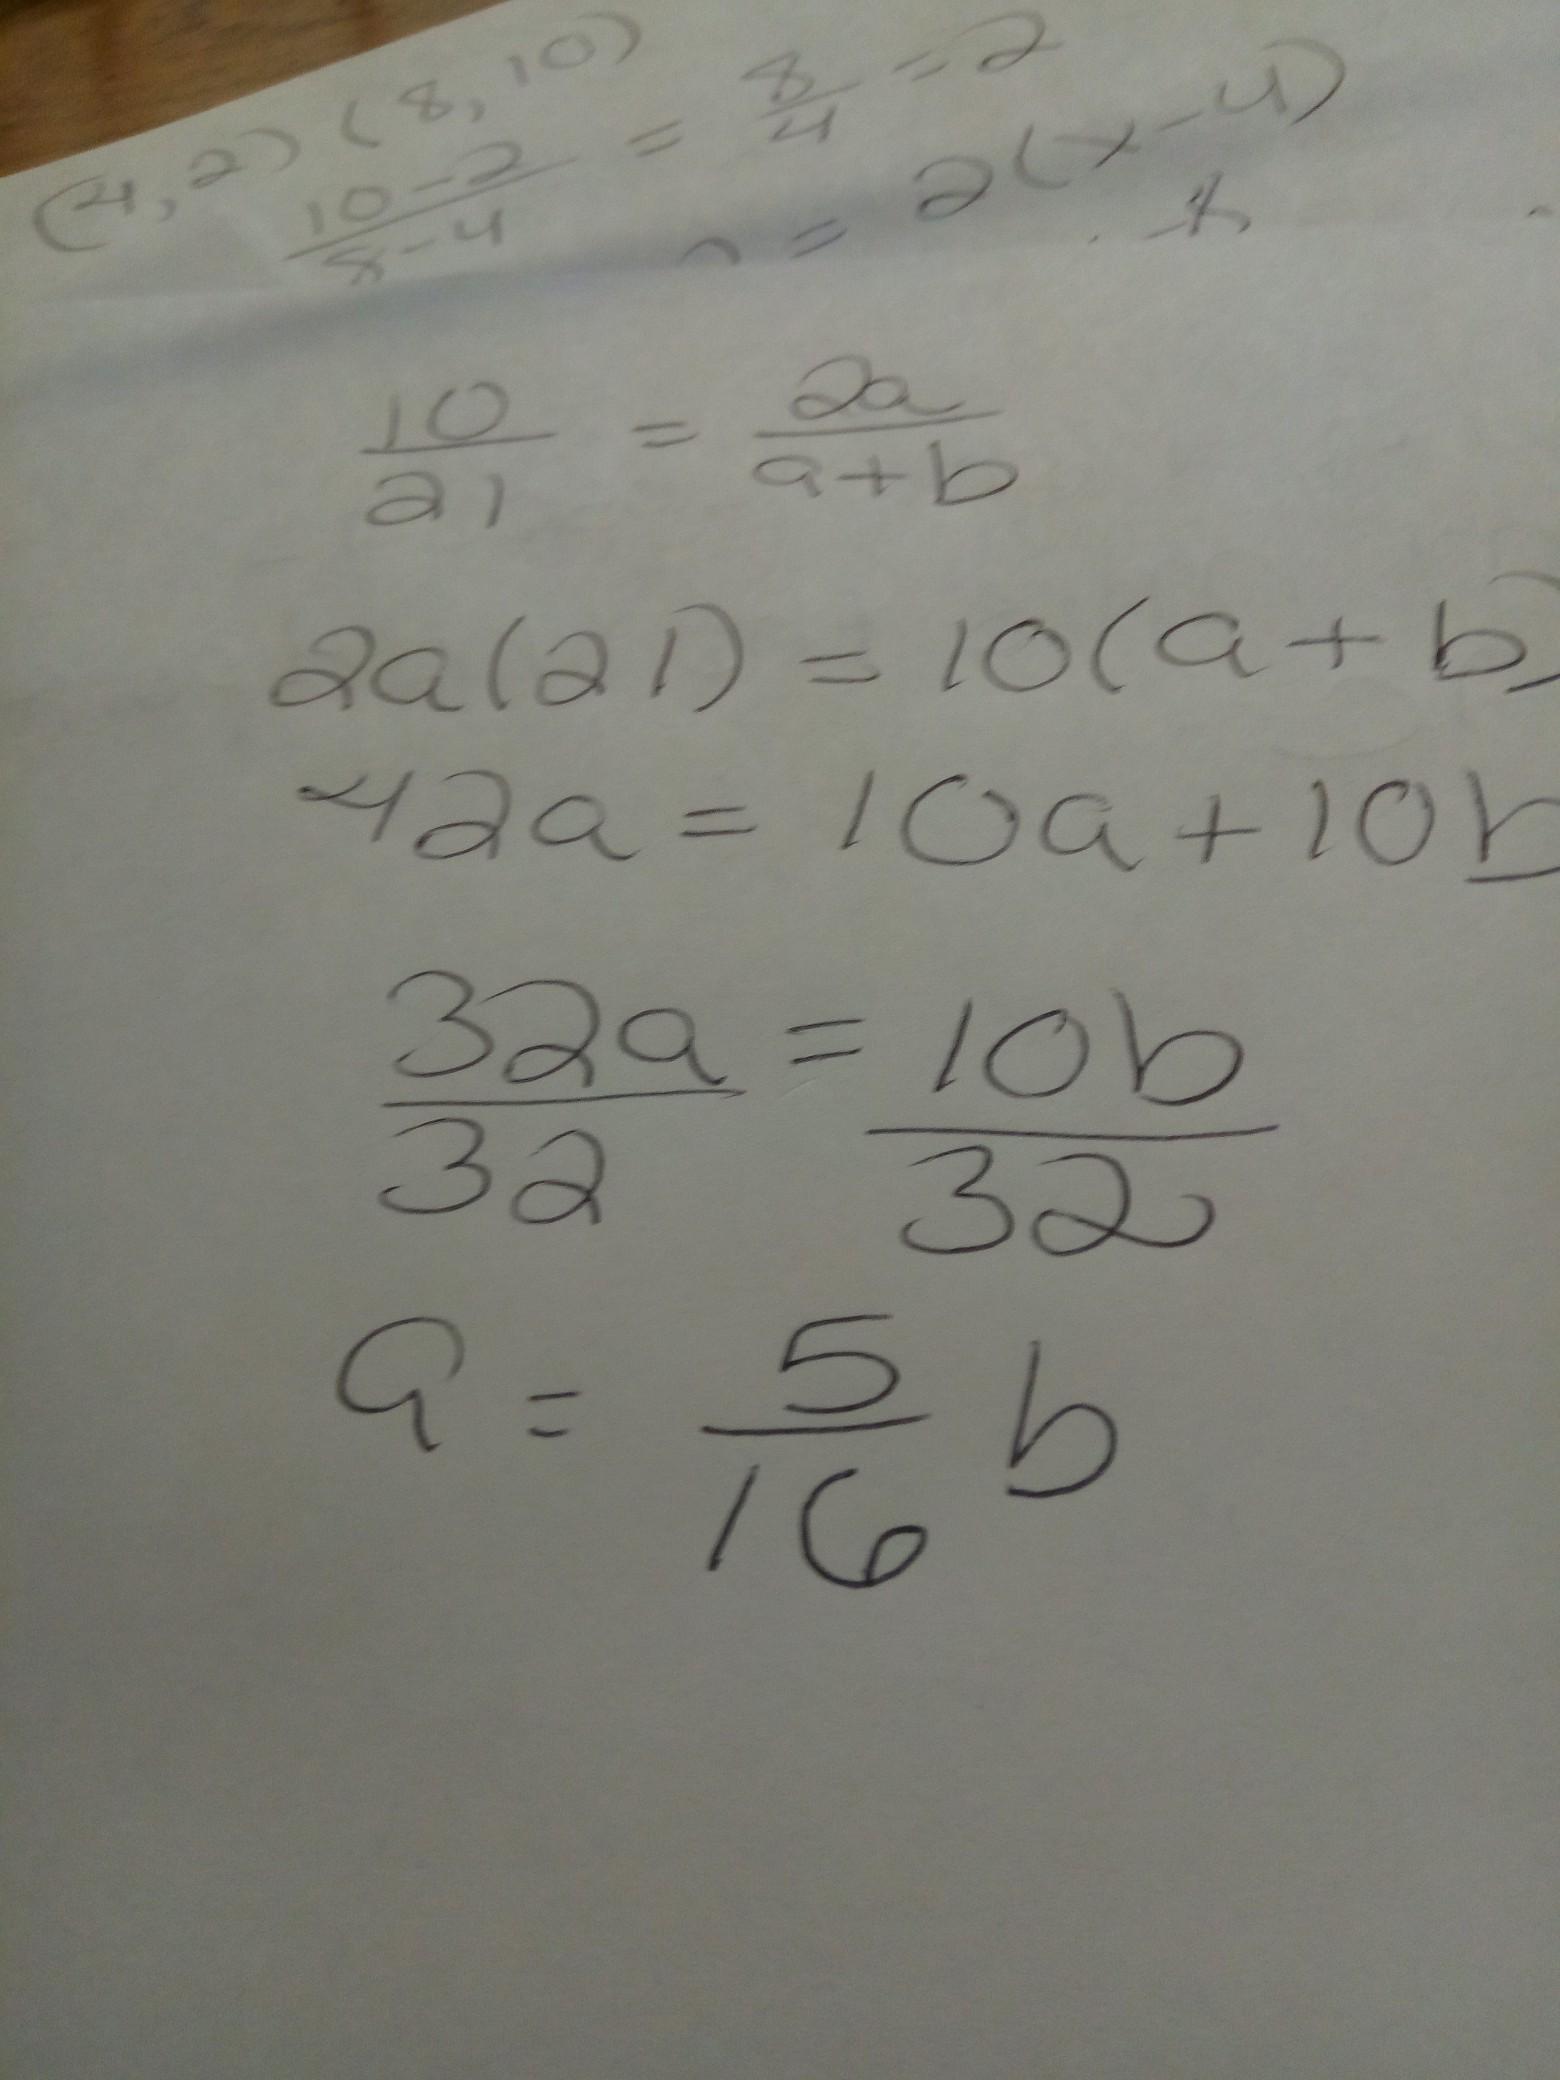 (4,2) (8,10)
10-2/8-4 = 8/4 = 2
= 2(x-4)
10/21 = 2a/a+b
2a(21) = 10(a+b)
42a = 10a+10b
32a/32 = 10b/32
a = 5/16 b